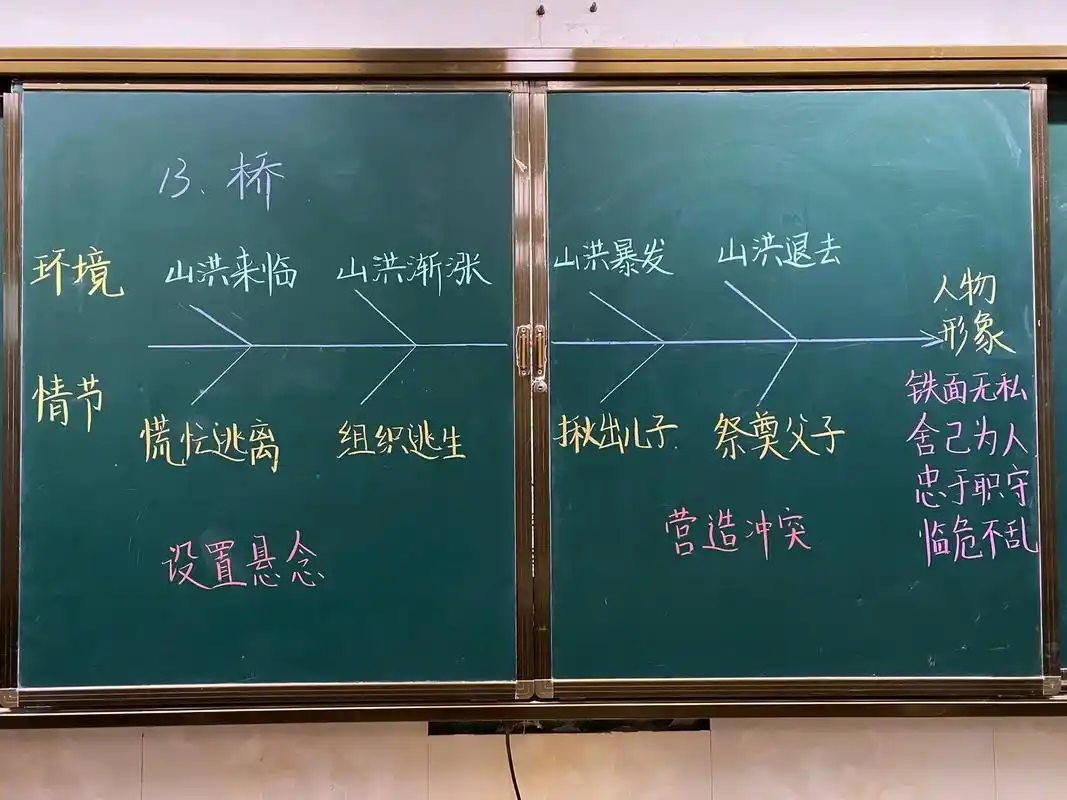 13、桥
环境 山洪来临 山洪渐涨 山洪暴发 山洪退去
人物
形象
情节 慌忙逃离 组织逃生 揪出儿子 祭奠父子
铁面无私
舍己为人
忠于职守
临危不乱
设置悬念 营造冲突